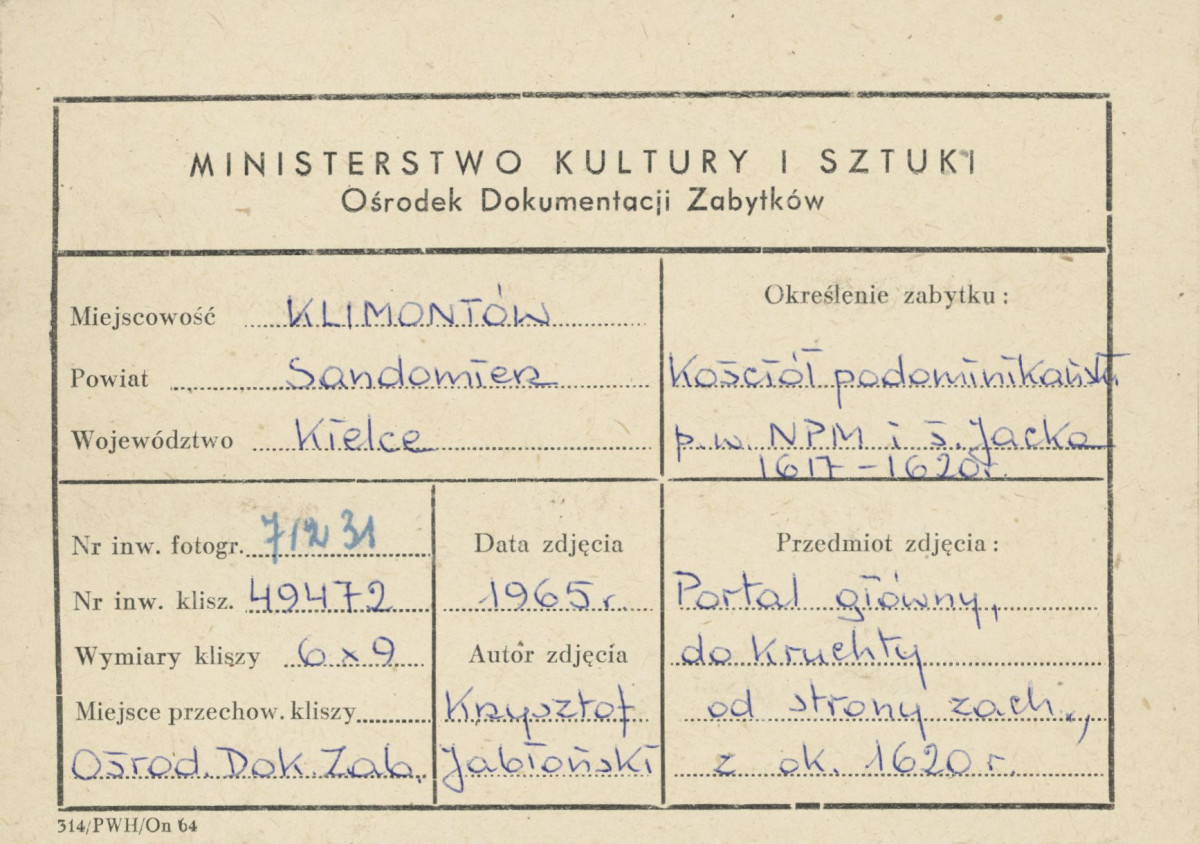 MINISTERSTWO KULTURY I SZTUKI
Ośrodek Dokumentacji Zabytków
Miejscowość KLIMONTÓW
Powiat Sandomierz
Województwo Kielce
Określenie zabytku:
Kościół podominikański
p.w. NPM i ś. Jacka
1617-1620r.
Nr inw. fotogr. 71231
Nr inw. klisz. 49472
Wymiary kliszy 6x9
Miejsce przechow. kliszy
Ośrod. Dok. Zab.
Data zdjęcia
1965r.
Autor zdjęcia
Krzysztof
Jabłoński
Przedmiot zdjęcia:
Portal główny,
do kruchty
od strony zach.,
z ok. 1620 r.
314/PWH/On 64